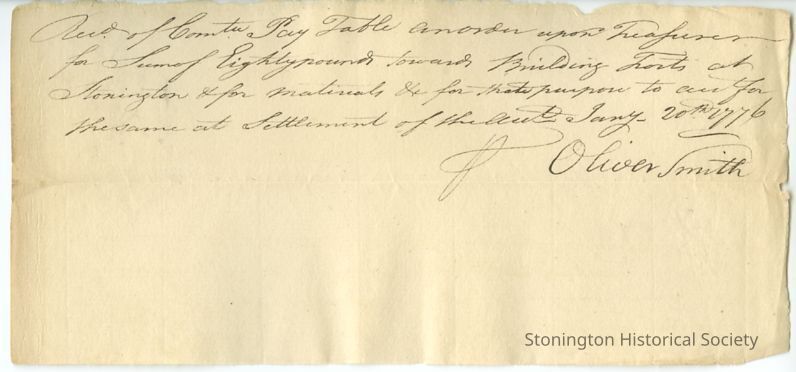 Recd. of Comtee Pay Table an order upon Treasurer
for Sum of Eighty pounds towards Building Forts at
Stonington & for materials &c for that purpose to acct for
the same at Settlement of the Acct Jany- 20th 1776
Oliver Smith
Stonington Historical Society